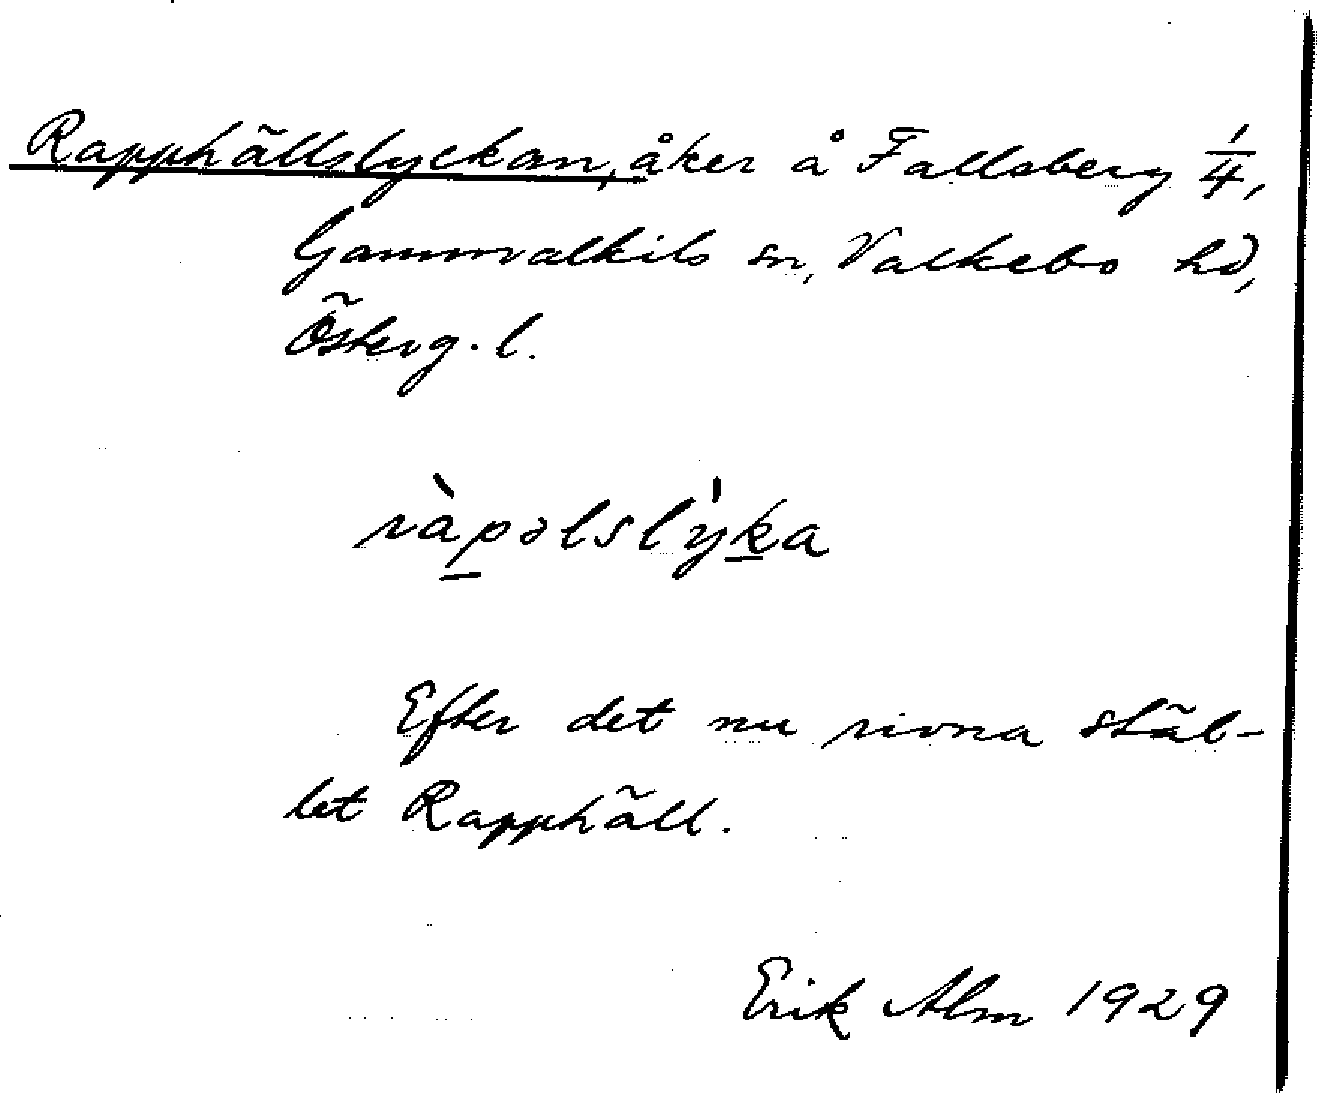 Rapphällslyckan, åker å Fallsberg 1/4,
Gammalkils sn, Valkebo hd,
Österg. l.
ràpəlslýka
Efter det nu rivna stäl-
let Rapphäll.
Erik Alm 1929